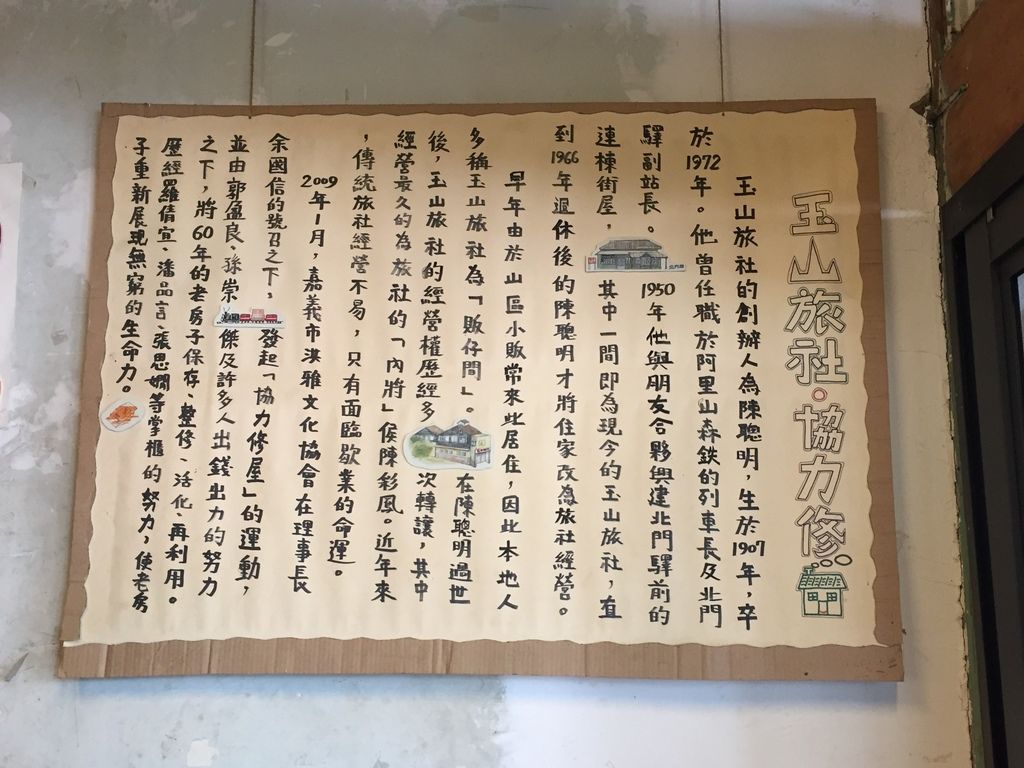 玉山旅社。協力修
玉山旅社的創辦人為陳聰明，生於1907年，卒
於1972年。他曾任職於阿里山森鉄的列車長及北門
驛副站長。1950年他與朋友合夥興建北門驛前的
連棟街屋，其中一間即為現今的玉山旅社，直
到1966年退休後的陳聰明才將住家改為旅社經營。
早年由於山區小販常來此居住，因此本地人
多稱玉山旅社為「販仔間」。在陳聰明過世
後，玉山旅社的經營權歷經多次轉讓，其中
經營最久的為旅社的「內將」侯陳彩鳳。近年來
，傳統旅社經營不易，只有面臨歇業的命運。
2009年1月，嘉義市洪雅文化協會在理事長
余國信的號召之下，發起「協力修屋」的運動，
並由郭盈良、孫崇傑及許多人出錢出力的努力
之下，將60年的老房子保存、整修、活化、再利用。
歷經羅倩宜、潘品言、張思嫺等掌櫃的努力，使老房
子重新展現無窮的生命力。